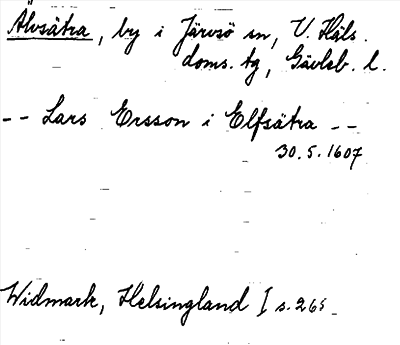 Älvsätra, by i Järvsö sn, V. Häls.
doms. tg, Gävleb. l.
-- Lars Ersson i Elfsätra --
30.5.1607
Widmark, Helsingland I s. 265